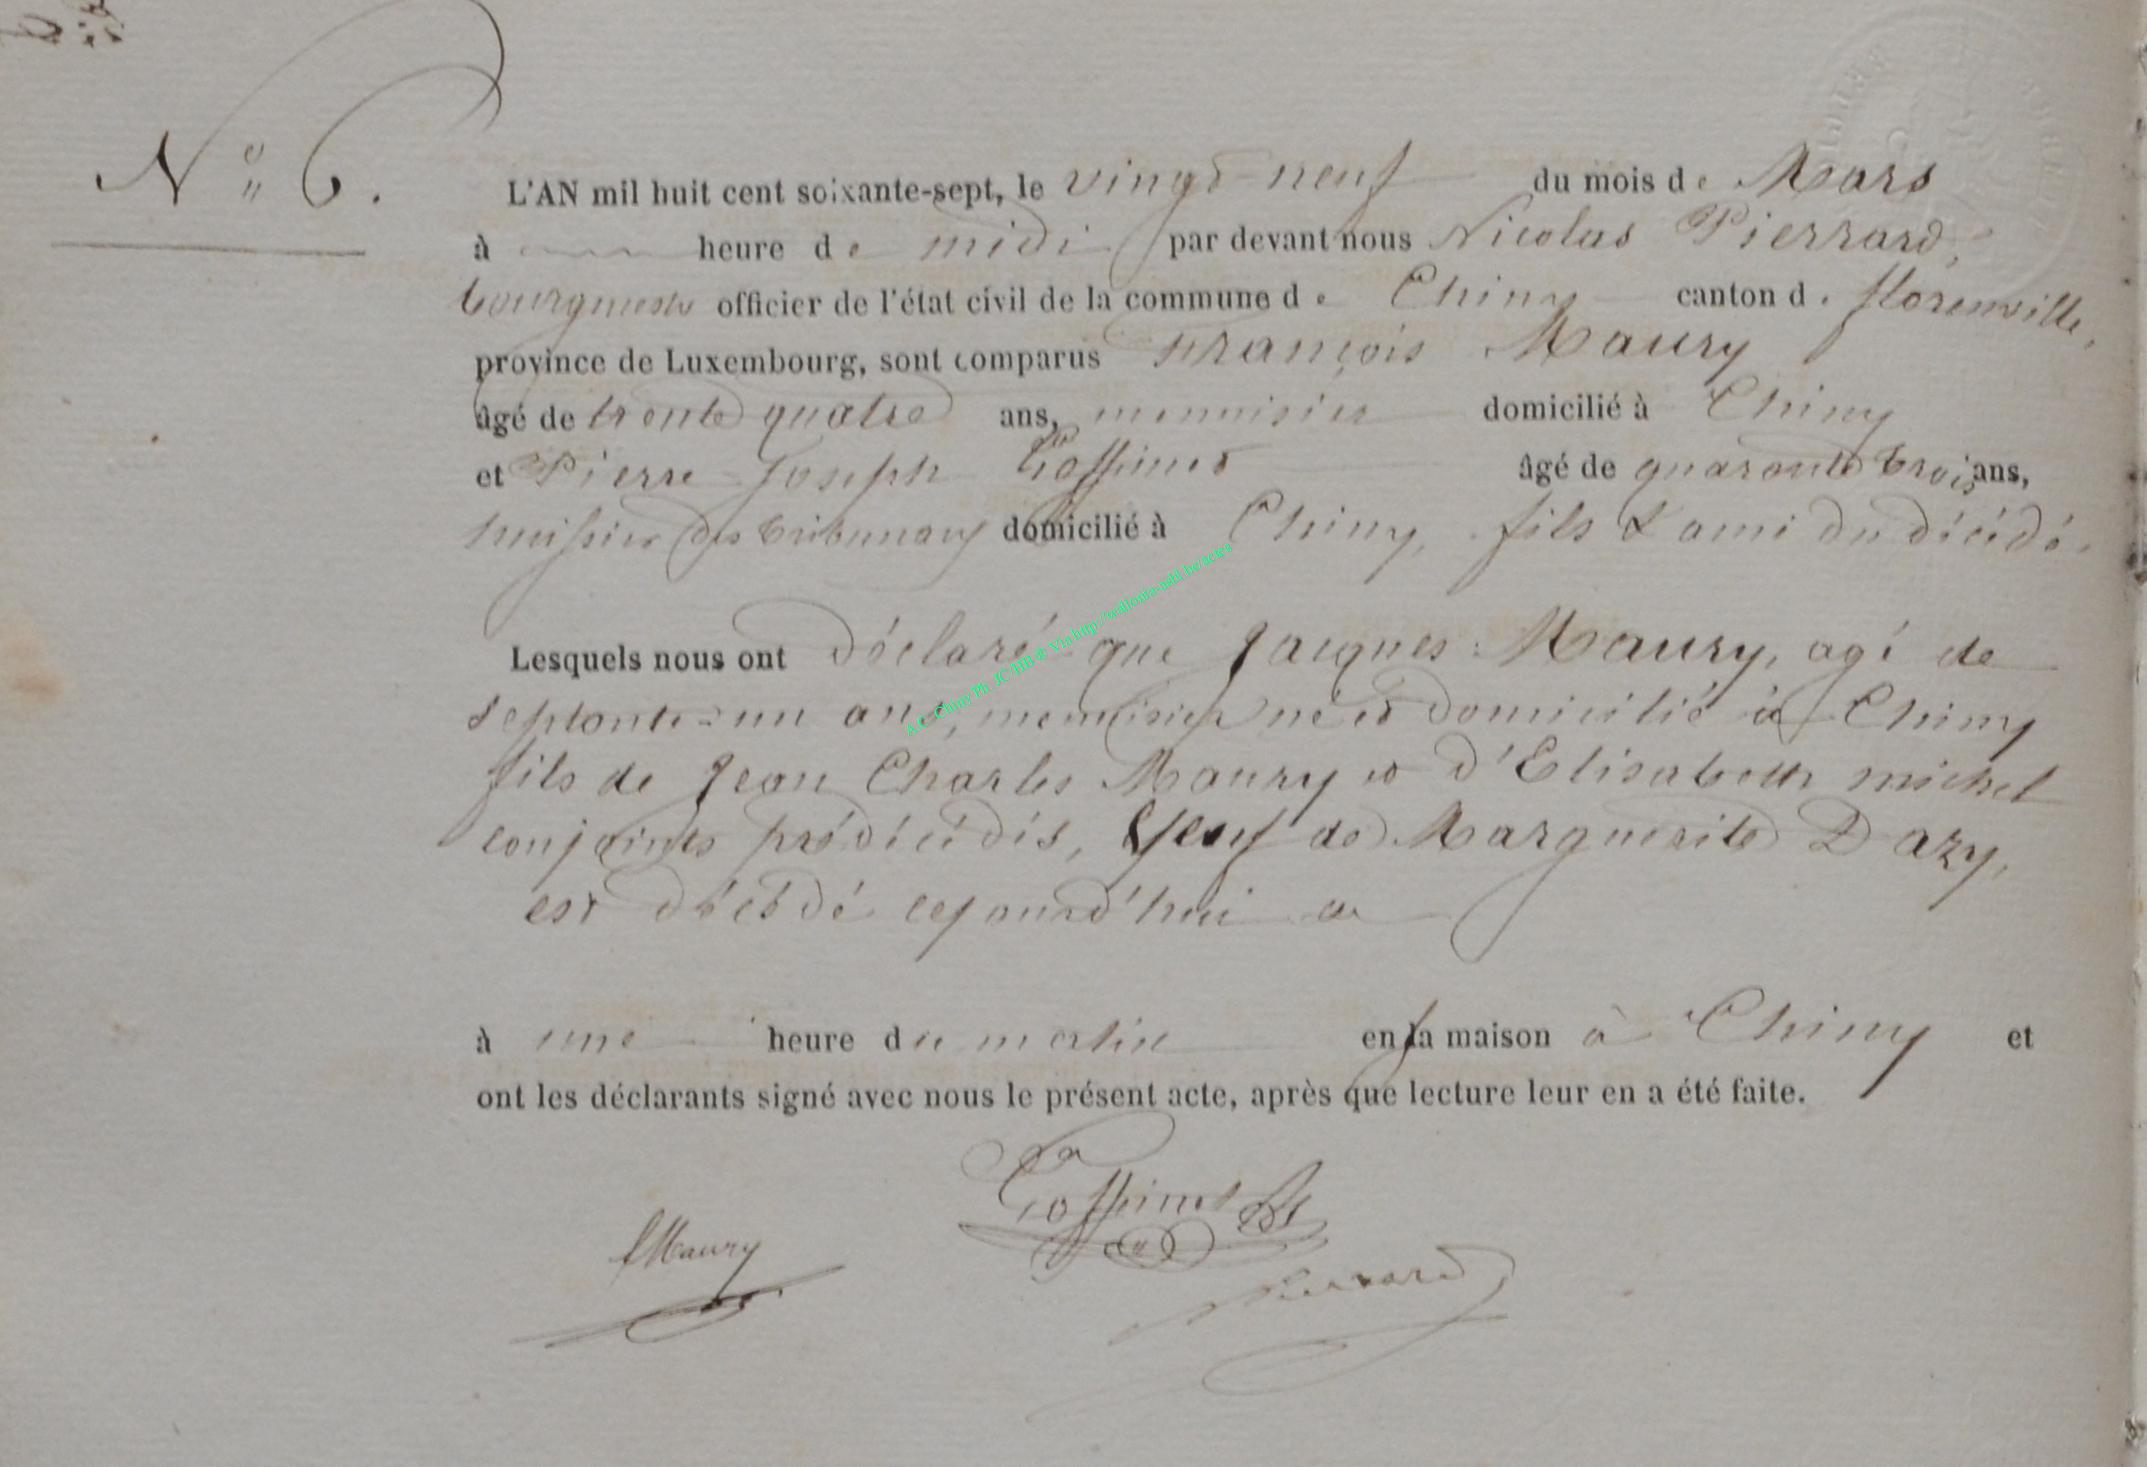 N° 6.
L'AN mil huit cent soixante-sept, le vingt-neuf du mois de Mars
à heure de midi par devant nous Nicolas Pierrard,
bourgmestre officier de l'état civil de la commune de Chiny canton de florenville,
province de Luxembourg, sont comparus François Maury
âgé de trente quatre ans, menuisier domicilié à Chiny
et Pierre-Joseph Goffinet âgé de quarante trois ans,
huissier des tribunaux domicilié à Chiny, fils & ami du décédé.
Lesquels nous ont déclaré que Jacques Maury, agé de
septante-un ans, menuisier né et domicilié à Chiny
fils de Jean Charles Maury et d'Elisabeth michel
conjoints prédécédés, Veuf de Marguerite Dazy,
est décédé cejourd'hui a
à une heure du matin en sa maison à Chiny et
ont les déclarants signé avec nous le présent acte, après que lecture leur en a été faite.
Goffinet
fMaury
Pierrard
A.C. Chiny Ph. JC HB © Via http://wallonia-asbl.be/actes